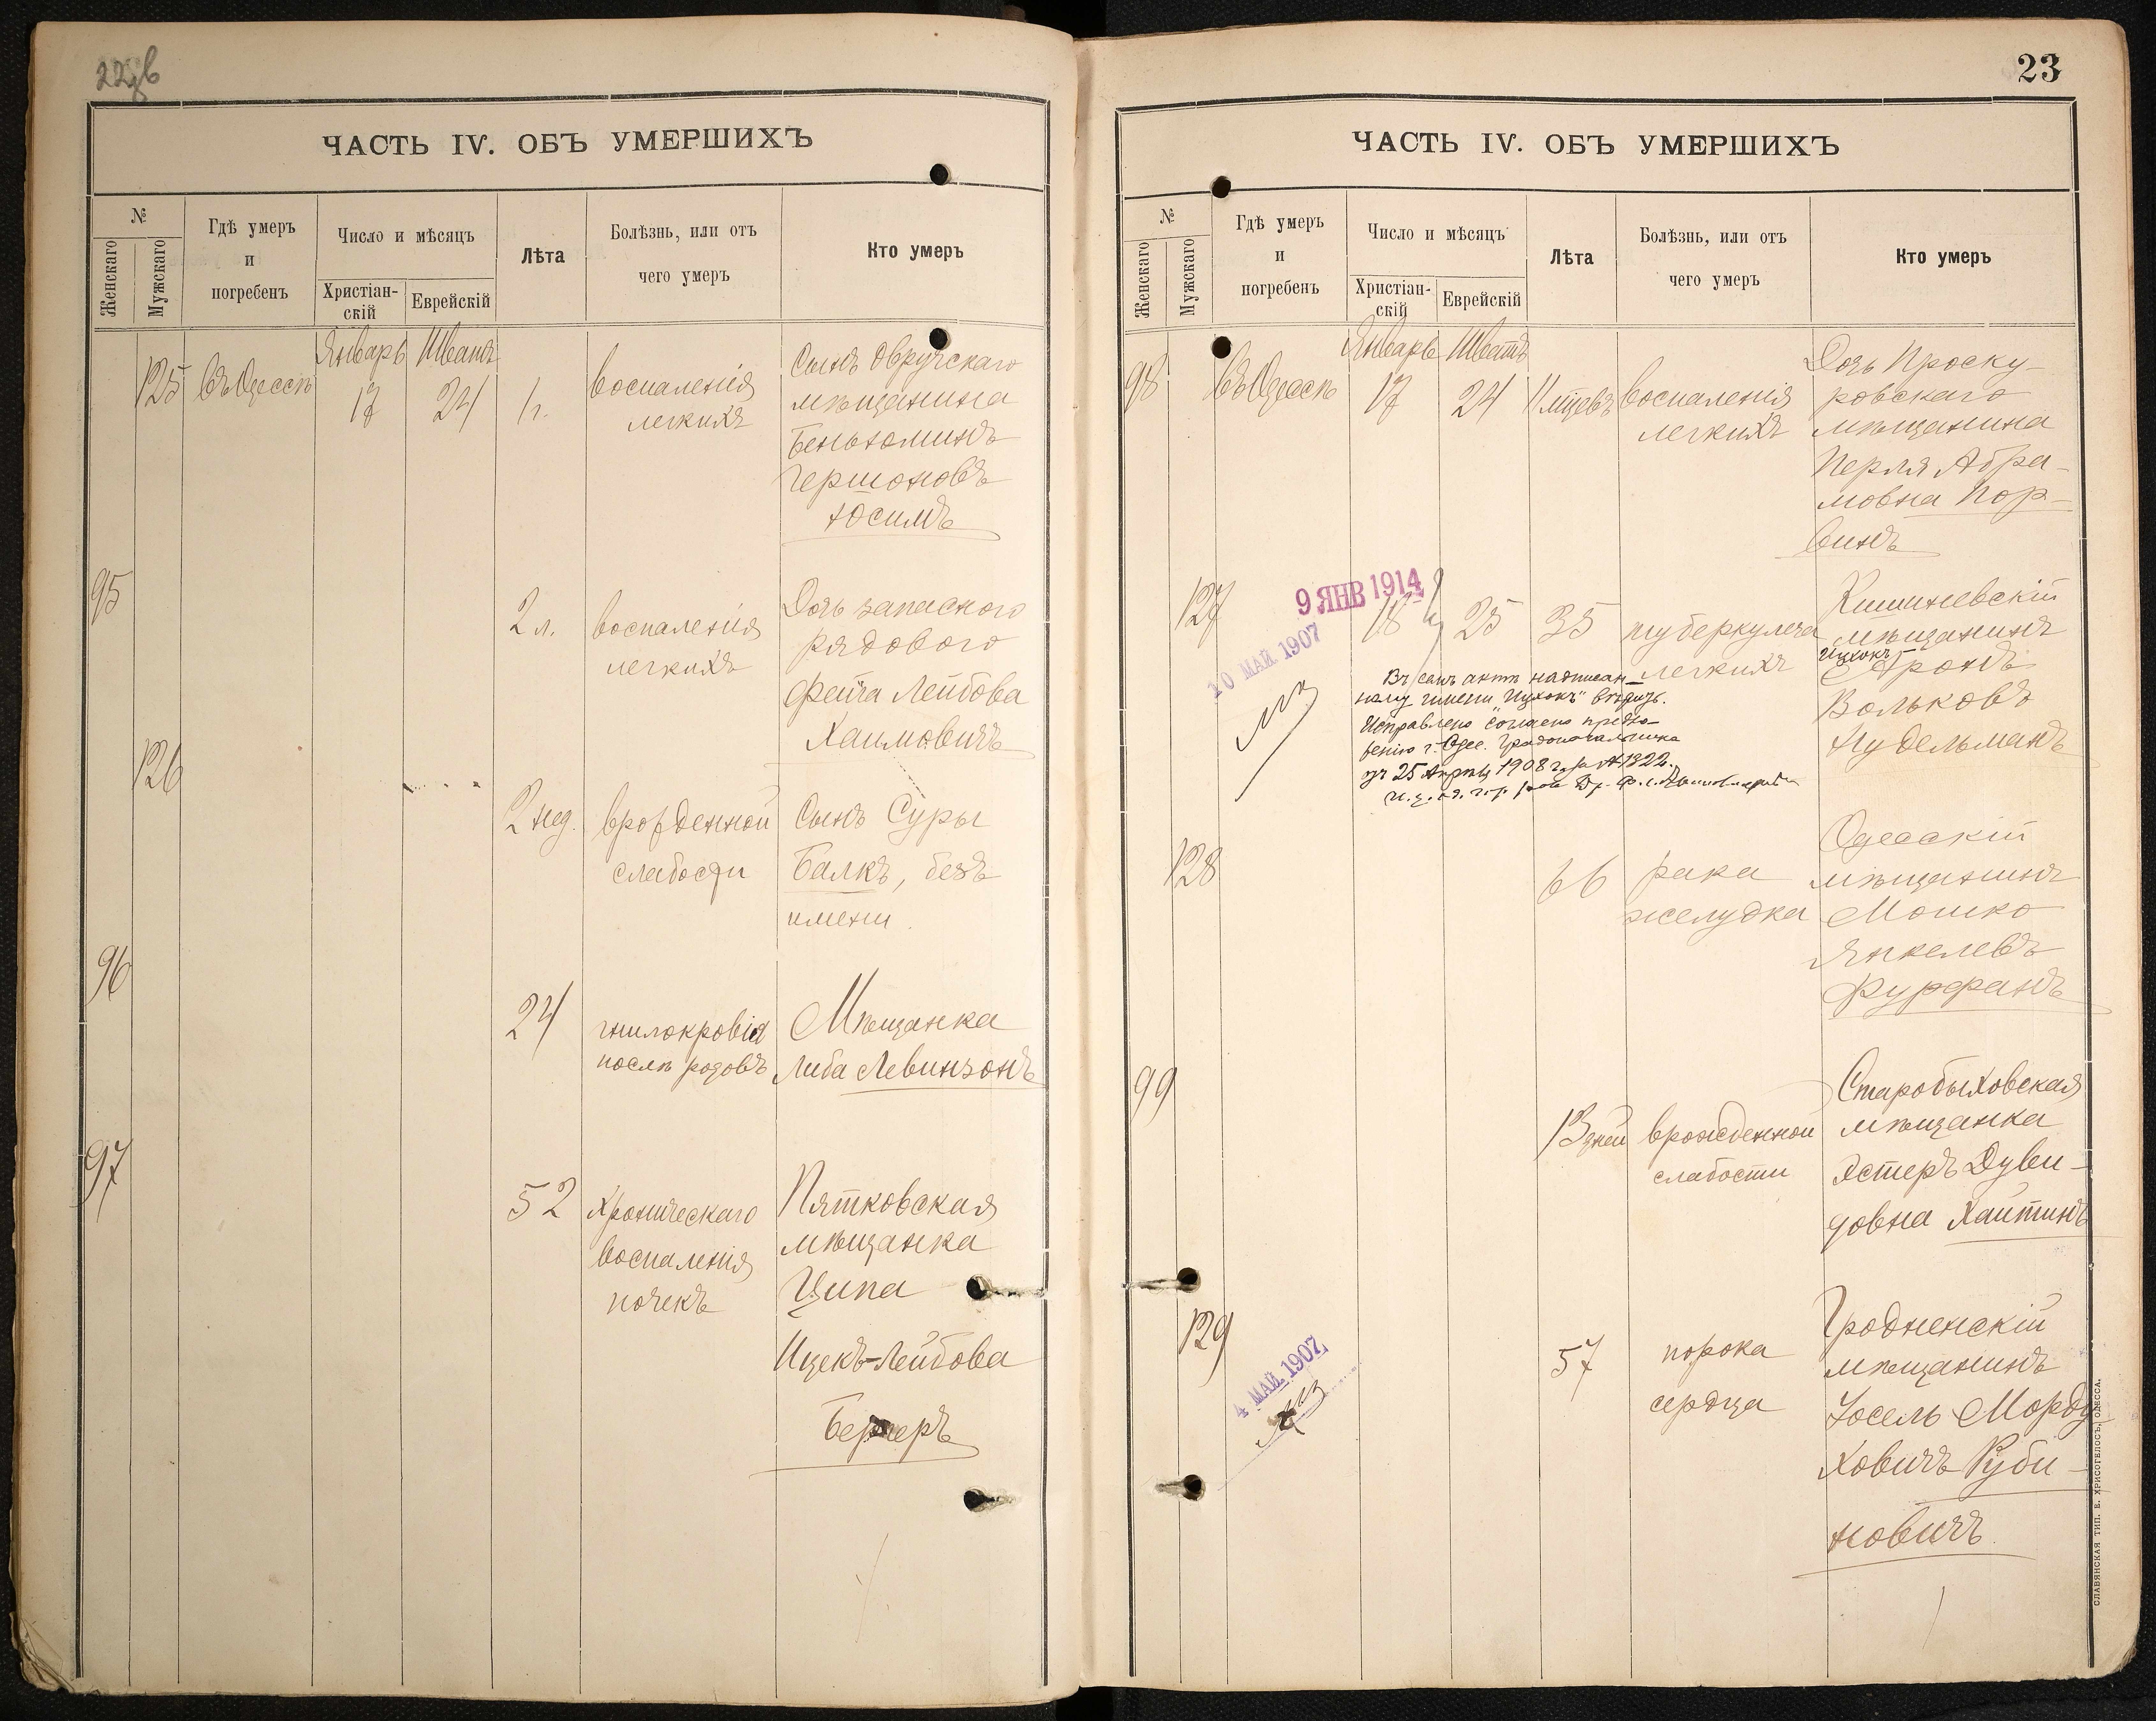 ЧАСТЬ IV. ОБЪ УМЕРШИХЪ
№
Женскаго
Мужскаго
Гдѣ умеръ
и
погребенъ
Число и мѣсяцъ
Христіан-
скій
Еврейскій
Лѣта
Болѣзнь, или отъ
чего умеръ
Кто умеръ
Январь Шватъ
125 Въ Одессѣ 17 24 1 г.
воспаленія
легкихъ
Сынъ Овручскаго
мѣщанина
Беньяминъ
Гершоновъ
Юсимъ
95
2 л.
воспаленія
легкихъ
Дочь запаснаго
рядового
Фейга Лейбова
Хаимовичъ
126
2 нед.
врожденной
слабости
Сынъ Суры
Балкъ, безъ
имени
96
24
гнилокровія
послѣ родовъ
Мѣщанка
Либа Левинзонъ
97
52
хроническаго
воспаленія
почекъ
Пятковская
мѣщанка
Ципа
Ицекъ-Лейбова
23
ЧАСТЬ IV. ОБЪ УМЕРШИХЪ
№
Женскаго
Мужскаго
Гдѣ умеръ
и
погребенъ
Число и мѣсяцъ
Христіан-
скій
Еврейскій
Лѣта
Болѣзнь, или отъ
чего умеръ
Кто умеръ
Январь Шватъ
98 Въ Одессѣ 17 24 11 мѣсецевъ
воспаленія
легкихъ
Дочь Проску-
ровскаго
мѣщанина
Перля Абра-
мовна Пор-
винъ
127
9 ЯНВ 1914
10 МАЙ 1907
18 25 35
туберкулеза
легкихъ
Кишиневскій
мѣщанинъ
Ицхокъ
Аронъ
Вольковъ
Нудельманъ
Въ семъ актѣ надписан-
ному имени "Ицхокъ" вѣрить.
Исправлено согласно предло-
женію г. Одес. Градоначальника
отъ 25 Апрѣля 1908 г. за № 1322.
128
66
рака
желудка
Одесскій
мѣщанинъ
Мошко
Янкелевъ
Фурманъ
99
13 дней
врожденной
слабости
Старобыховская
мѣщанка
Эстеръ Дуви-
довна Хайтинъ
129
4 МАЙ 1907
57
порока
сердца
Гродненскій
мѣщанинъ
Іосель Морду
ховичъ Руби-
новичъ
СЛАВЯНСКАЯ ТИП. Е. ХРИСОГЕЛОСЪ, ОДЕССА.